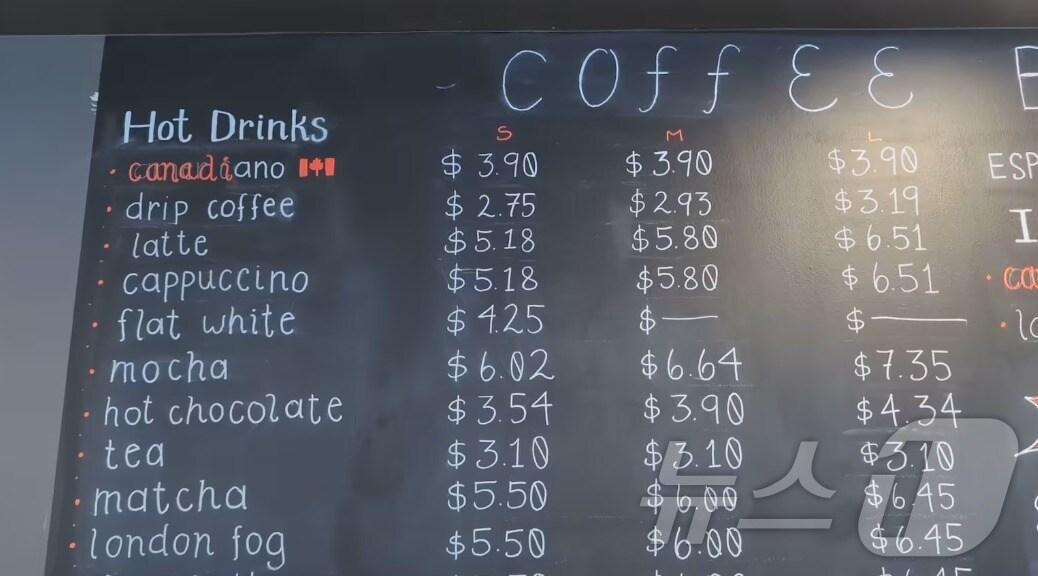 COffEE
Hot Drinks S M L
· canadiano $ 3.90 $ 3.90 $3.90 ESP
· drip coffee $ 2.75 $2.93 $3.19
· latte $5.18 $5.80 $6.51
· cappuccino $5.18 $5.80 $6.51
· flat white $ 4.25 $ — $ —
· mocha $6.02 $6.64 $7.35
· hot chocolate $3.54 $3.90 $4.34
· tea $3.10 $3.10 $3.10
· matcha $5.50 $6.00 $6.45
· london fog $5.50 $6.00 $6.45
뉴스1